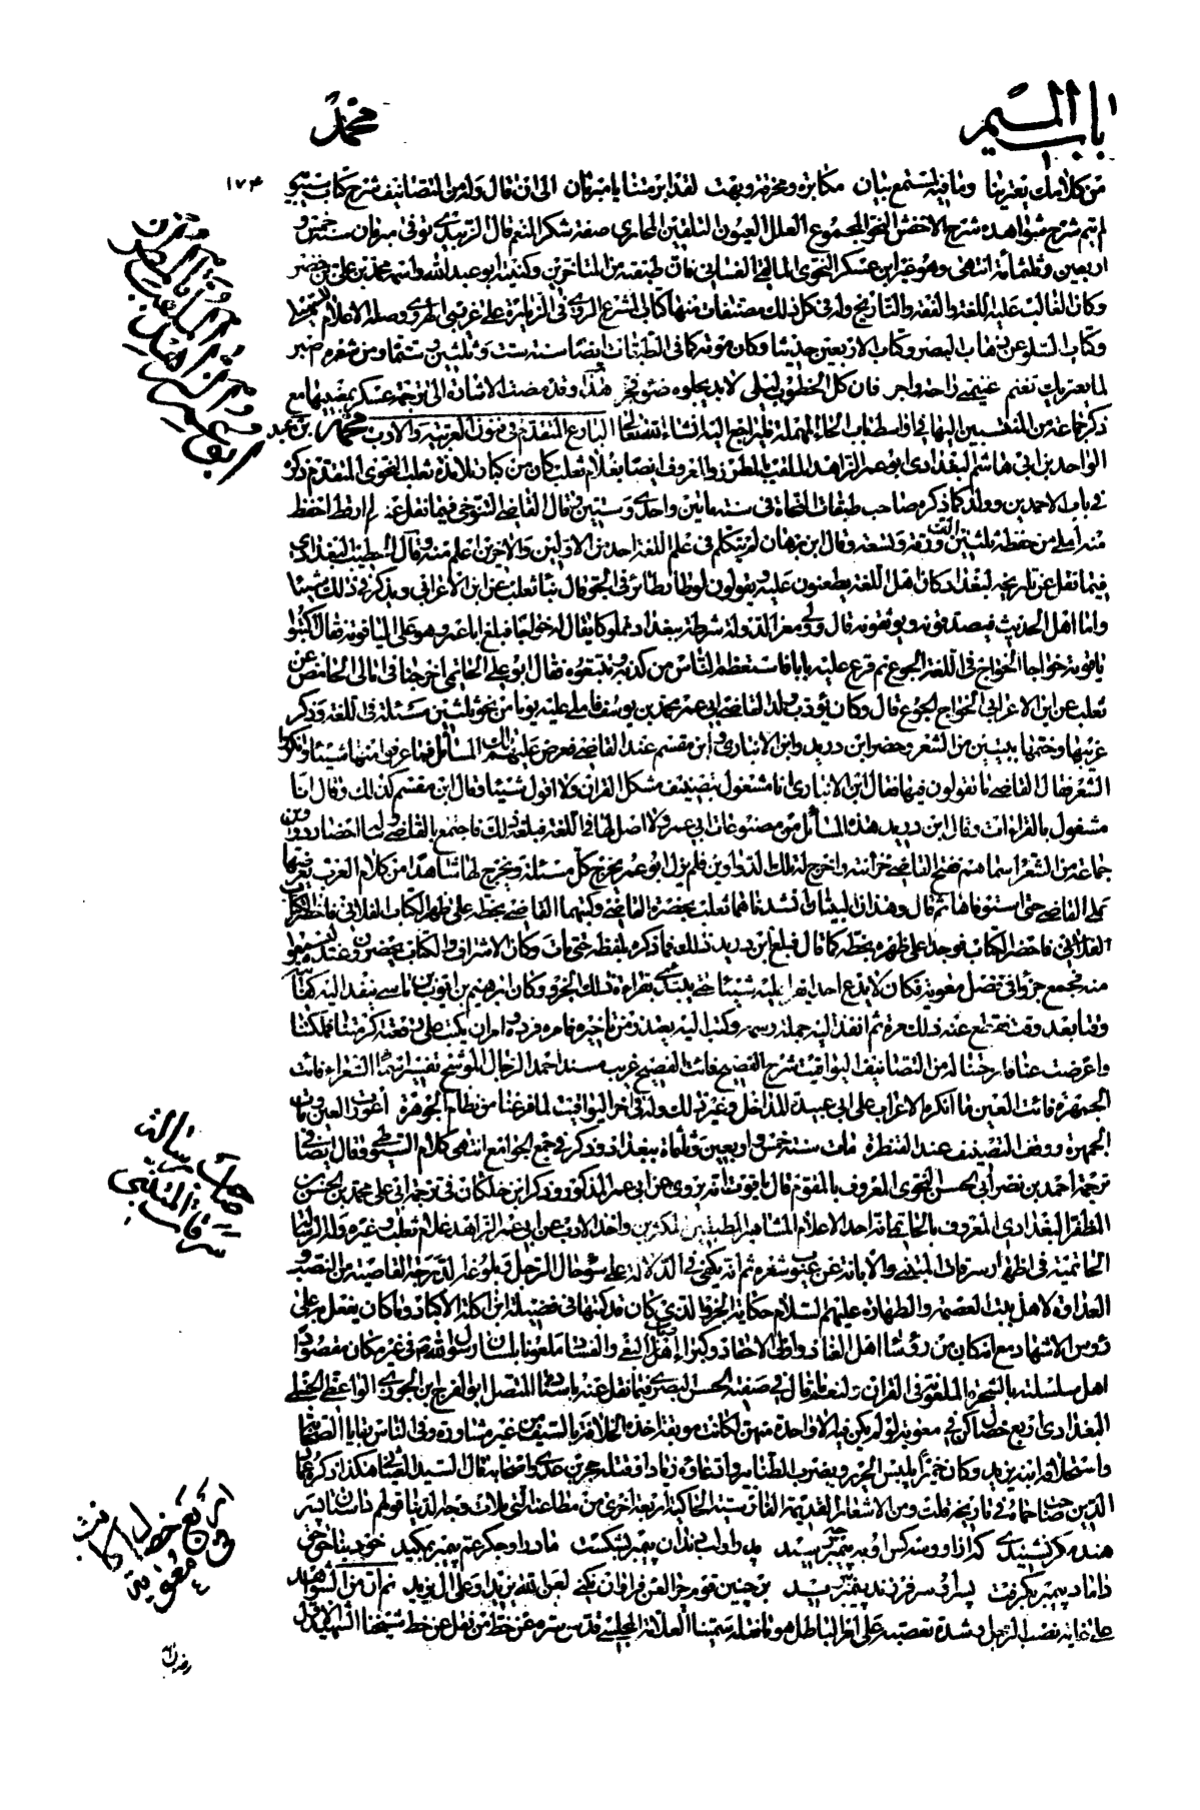 باب الميم
محمد
١٧٤
من كلامك يعترينا وما فيه لمستمع بيان مكابرة ومخرقة وبهت لقد ابرمتنا يا مبرمان الى ان قال وله من التصانيف شرح كتاب سيبويه
لم يتم شرح شواهده شرح الاخفش النحو المجموع العلل العيون التلقين المجارى صفة شكر المنعم قال الزبيدى توفى مبرمان سنة خمس و
اربعين وثلثمائة انتهى وهو غير ابن عسكر النحوى المالقى الغسانى فان طبقته من المتأخرين وكنيته ابو عبد الله واسمه محمد بن على بن خضر
وكان الغالب عليه اللغة والفقه والتاريخ وله فى كل ذلك مصنفات منها كتاب المشرع الروى فى الزيادة على غريبى الهروى وصلة الاعلام للسهيلى
وكتاب السلو عن ذهاب البصر وكتاب الاربعين حديثا وكان موته كما فى الطبقات ايضا سنة ست وثلثين وستمائة ومن شعره اصبر
لما يعتريك تغنم غنيمتى راحة واجر فان كل الخطوب ليل لا بد يجلوه ضوء فجر هذا وقد مضت الاشارة الى ترجمة عسكر بقديها مع
ذكر جماعة من المنتسبين اليها فى اواسط باب الحاء المهملة فليراجع اليه انشاء الله تعالى البارع المتقدم فى فنون العربية والادب محمد بن عبد
الواحد بن ابى هاشم البغدادى ابو عمر الزاهد الملقب بالمطرز والمعروف ايضا بغلام ثعلب كان من كبار تلامذة ثعلب النحوى المتقدم ذكره
فى باب الاحمدين وولد كما ذكره صاحب طبقات النحاة فى سنة مأتين واحدى وستين قال القاضى التنوخى فيما نقل عنه لم ار قط احفظ
منه املى من حفظه ثلثين الف ورقة ولسعة وقال ابن برهان لم يتكلم فى علم اللغة احد من الاولين والآخرين اعلم منه وقال الخطيب البغدادى
فيما نقل عن تاريخه لبغداد كان اهل اللغة يطعنون عليه ويقولون لو طار طائر فى الجو قال ثنا ثعلب عن ابن الاعرابى ويذكر فى ذلك شيئا
واما اهل الحديث فيصدقونه ويوثقونه قال ولى معز الدولة شرطة بغداد مملوكا يقال له خواجا فبلغ ابا عمر وهو يملى الياقوتة فقال اكتبوا
ياقوتة خواجا الخواج فى اللغة الجوع ثم فرع عليه بابا فاستعظم الناس من كذبه وتتبعوه فقال ابو على الحاتمى اخرجنا فى امالى الحامض عن
ثعلب عن ابن الاعرابى الخواج الجوع قال وكان يؤدب ولد القاضى ابى عمر محمد بن يوسف فاملى عليه يوما من نحو ثلثين مسئلة فى اللغة وذكر
غريبها وختمها ببيتين من الشعر وحضر ابن دريد وابن الانبارى وابن مقسم عند القاضى فعرض عليهم تلك المسائل فما عرفوا منها شيئا وانكروا
الشعر فقال القاضى ما تقولون فيها فقال ابن الانبارى انا مشغول بتصنيف مشكل القرآن ولا اقول شيئا وقال ابن مقسم كذلك وقال انا
مشغول بالقراءات وقال ابن دريد هذه المسائل من مصنوعات ابى عمر ولا اصل لها فى اللغة فبلغه ذلك فاجتمع بالقاضى وسأله احضار دواوين
جماعة من الشعراء سماهم ففتح القاضى خزانته واخرج له تلك الدواوين فلم يزل ابو عمر يخرج كل مسئلة ويخرج لها شاهدا من كلام العرب يعرضها
على القاضى حتى استوفاها ثم قال وهذان البيتان انشدناهما ثعلب بحضرة القاضى وكتبهما القاضى بخطه على ظهر الكتاب الفلانى فاحضر الكتاب
الفلانى فاحضر الكتاب فوجد على ظهره بخطه كما قال فبلغ ابن دريد ذلك فما ذكره بلفظة حتى مات وكان الاشراف والكتاب يحضرون عنده ليسمعوا
منه فجمع جزوا فى فضل معوية فكان لا يدع احدا يقرأ عليه شيئا حتى يبتدئ بقراءة ذلك الجزو وكان ابرهيم بن ايوب بن ماسى ينفذ اليه كفايته
وقتا بعد وقت فقطع عنه ذلك مرة ثم انفذ اليه جملة رسمه وكتب اليه يعتذر من تأخيره فامره فرده وامر ان يكتب على رقعته اكرمتنا فملكتنا
واعرضت عنا فارحتنا له من التصانيف اليواقيت شرح الفصيح فائت الفصيح غريب مسند احمد المرجال الموشح تفسير اسماء الشعراء فائت
الجمهرة فائت العين ما انكره الاعراب على ابى عبيدة المداخل وغير ذلك وله فى آخر اليواقيت لما فرغنا من نظام الجوهرة اعورت العين ومات
الجمهرة ووقف التصنيف عند القنطرة مات سنة خمس واربعين وثلثمائة ببغداد وذكره فى جمع الجوامع انتهى كلام السيوطى وقال ايضا فى
ترجمة احمد بن نصر ابى الحسن النحوى المعروف بالمقوم قال ياقوت انه يروى عن ابى عمر المذكور وذكر ابن خلكان فى ترجمة ابى على محمد بن الحسن بن
المظفر البغدادى المعروف بالحاتمى انه احد الاعلام المشاهير المطيقين المكثرين واخذ الادب عن ابى عمر الزاهد غلام ثعلب وغيره وله الرسالة
الحاتمية فى اظهار سرقات المتنبى والابانة عن عيوب شعره ثم انه يكفى فى الدلالة على سوء حال الرجل وبلوغه الدرجة القاصية من النصب و
العداوة لاهل بيت العصمة والطهارة عليهم السلام حكاية الجزو الذى كان قد كتبها فى فضيلة ابن آكلة الاكباد وما كان يفعل به على
رؤس الاشهاد مع انه كان من رؤساء اهل العناد واهل الاحقاد وكبراء اهل البغى والفساد ملعونا بلسان رسول الله ص فى غير مكان مقصودا
اهل سلسلته بالشجرة الملعونة فى القرآن ولنعم ما قال فى صفته الحسن البصرى فيما نقل عنه باسناده المتصل ابو الفرج ابن الجوزى الواعظ الحنبلى
البغدادى اربع خصال كن فى معوية لو لم يكن فيه الا واحدة منهن لكانت موبقة اخذه الخلافة بالسيف من غير مشاورة وفى الناس بقايا الصحابة
واستخلافه ابنه يزيد وكان خميرا يلبس الحرير ويضرب الطنابير وادعاؤه زيادا وقتله حجر بن عدى واصحابه قال السيد الصفى هكذا ذكره عماد
الدين صاحب حماة فى تاريخه قلت ومن الاشعار القديمة الفارسية الحاكية اربعة اخرى من مطاعنه التى ملأت وجه الدنيا قولهم داستان پسر
هند مگر نشنيدى كه از او وسه كس او به پيمبر چه رسيد پدر او لب ودندان پيمبر بشكست مادر او جگر عم پيمبر بمكيد خود بناحق حق
داماد پيمبر بگرفت پسر او سر فرزند پيمبر ببريد بر چنين قوم چرا لعن فراوان نكنى لعن الله يزيد او على آل يزيد ثم ان من الشواهد
على غاية نصب الرجل وشدة تعصبه على امر الباطل هو ما نقله سمينا العلامة المجلسى قدس سره عن خط من نقل عن خط شيخنا الشهيد
حكاية رسالة
سرقات المتنبى
اربع خصال
فى معوية